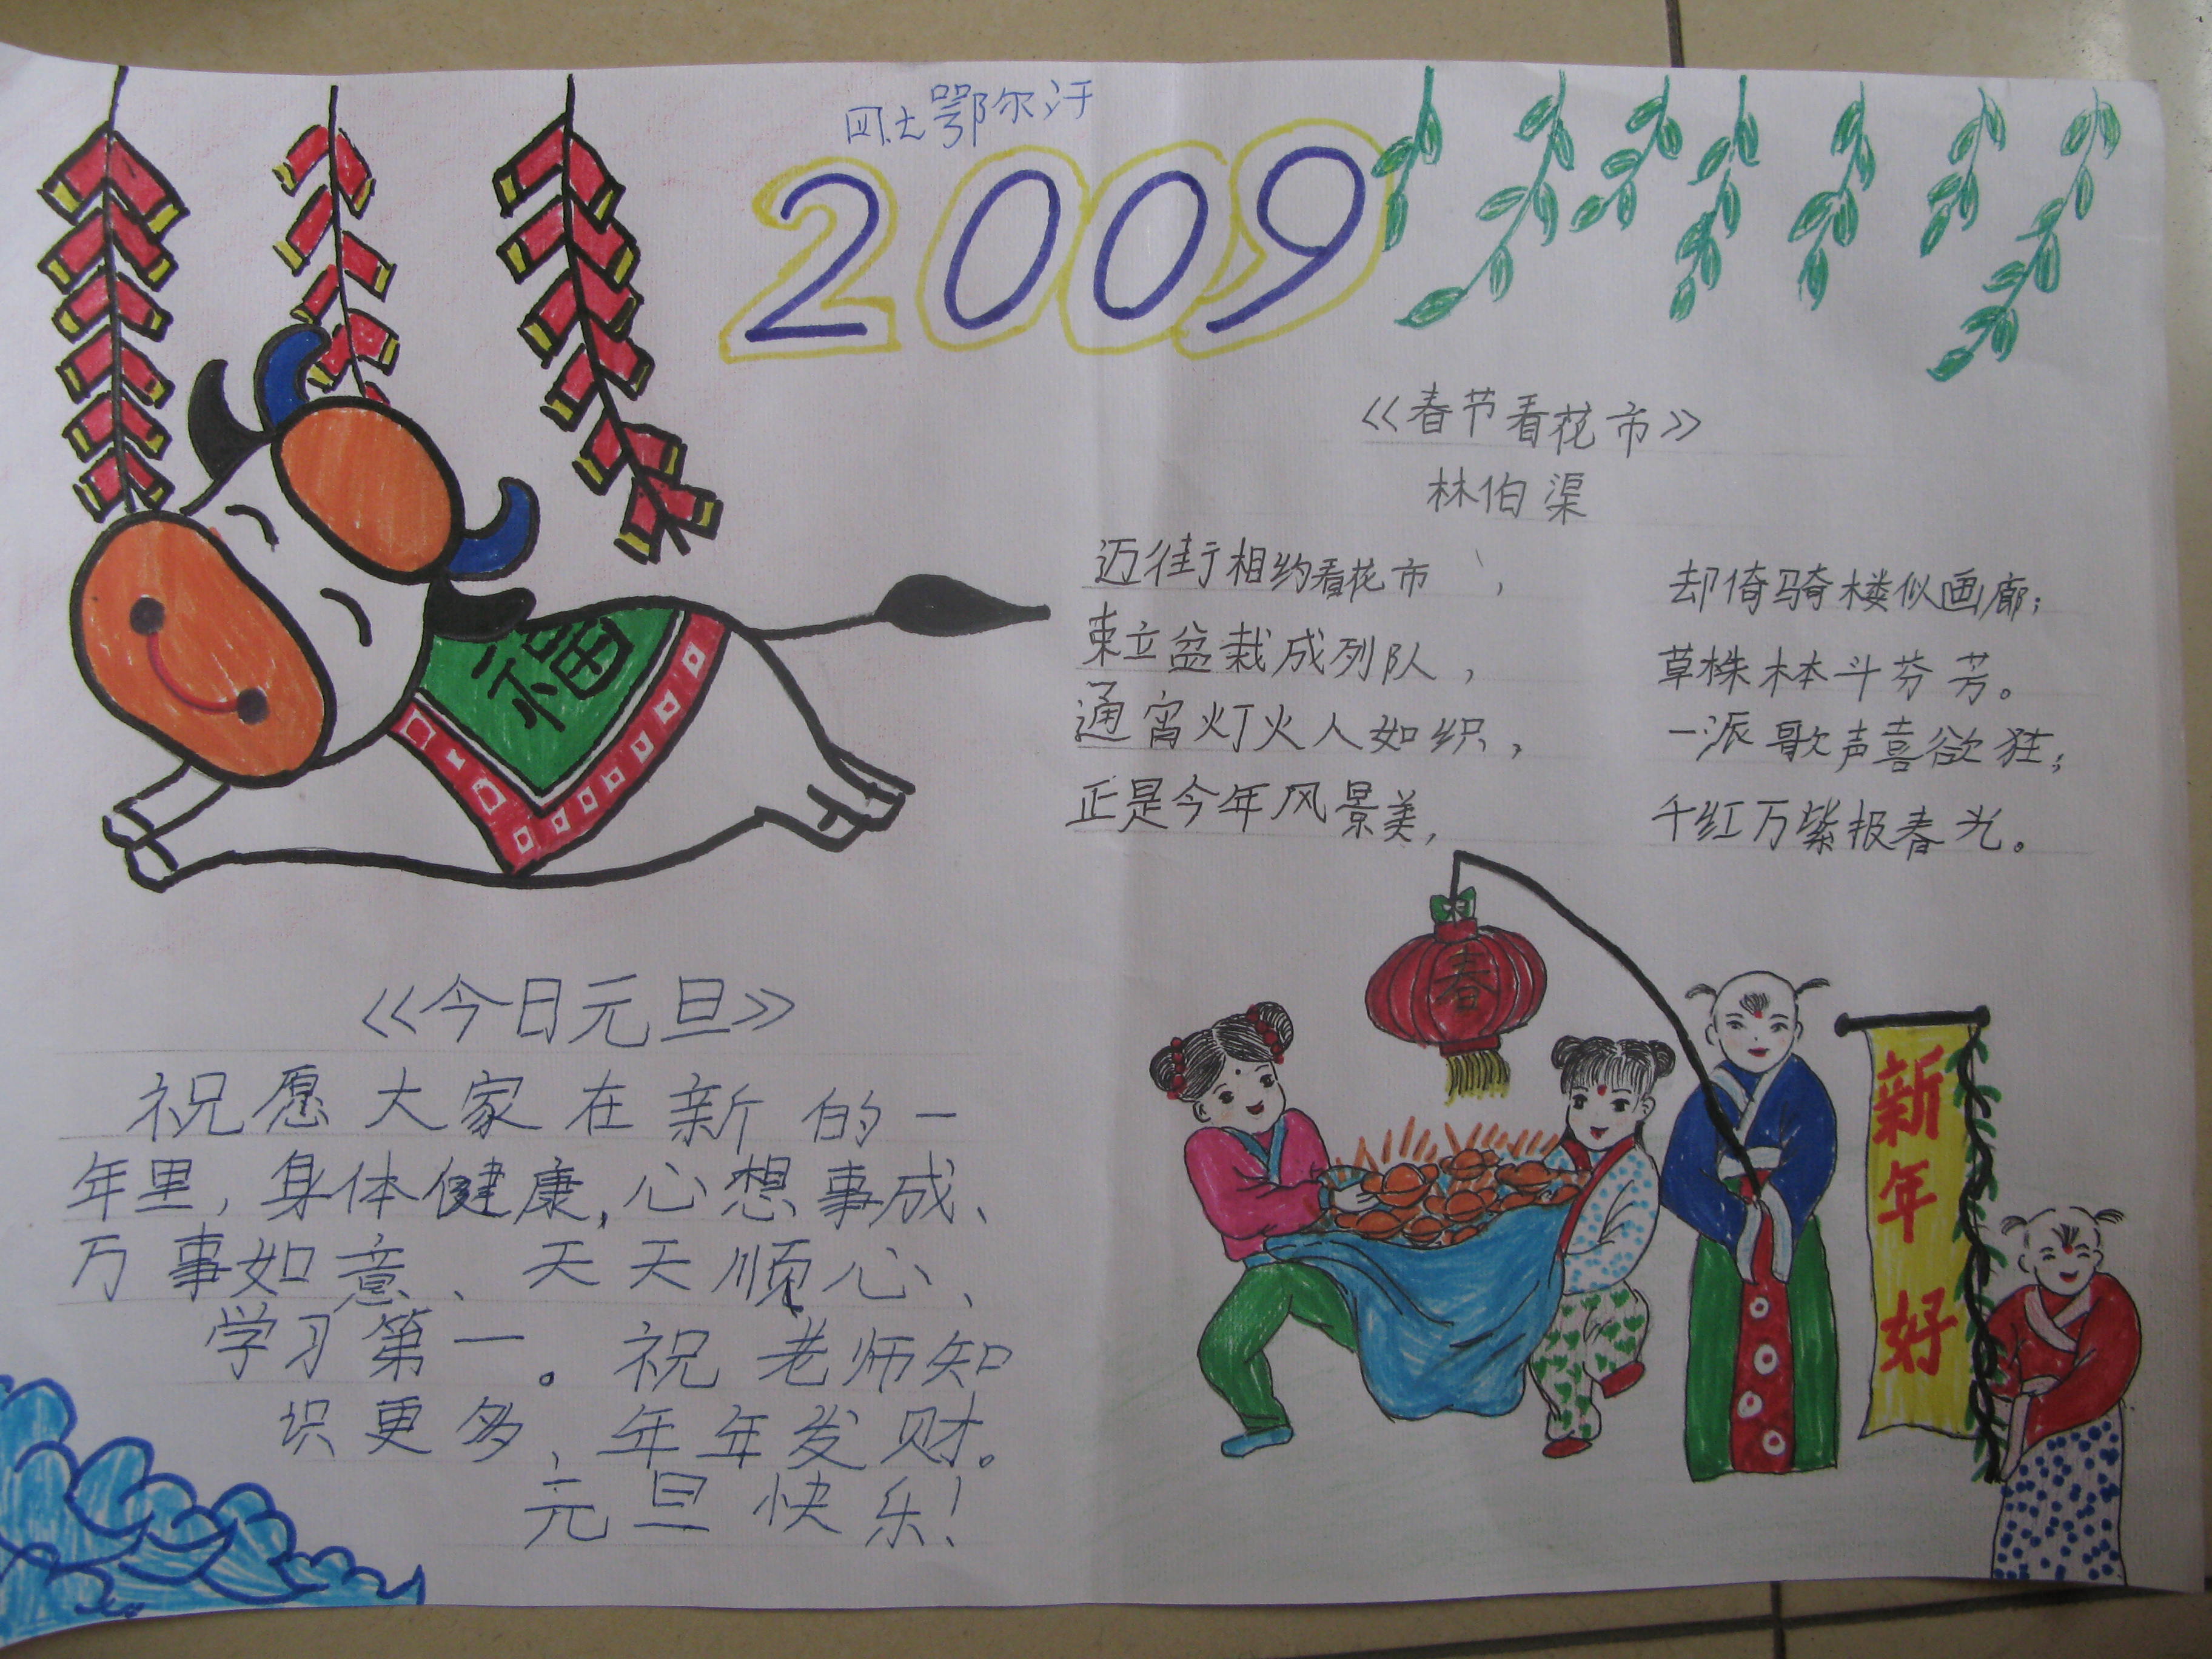 四.七鄂尔汗
2009
福
《春节看花市》
林伯渠
迈街相约看花市, 却倚骑楼似画廊;
束立盆栽成列队, 草株木本斗芬芳。
通宵灯火人如织, 一派歌声喜欲狂;
正是今年风景美, 千红万紫报春光。
春
新年好
《今日元旦》
祝愿大家在新的一
年里,身体健康,心想事成、
万事如意、天天顺心、
学习第一。祝老师知
识更多、年年发财。
元旦快乐!